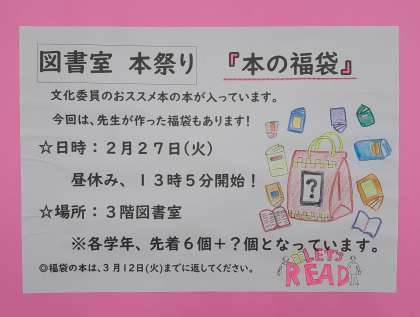 図書室 本祭り 『本の福袋』
文化委員のおススメ本の本が入っています。
今回は、先生が作った福袋もあります!
☆日時：２月２７日(火)
昼休み、１３時５分開始！
☆場所：３階図書室
※各学年、先着６個＋？個となっています。
◎福袋の本は、３月１２日(火)までに返してください。
?
LET'S
READ